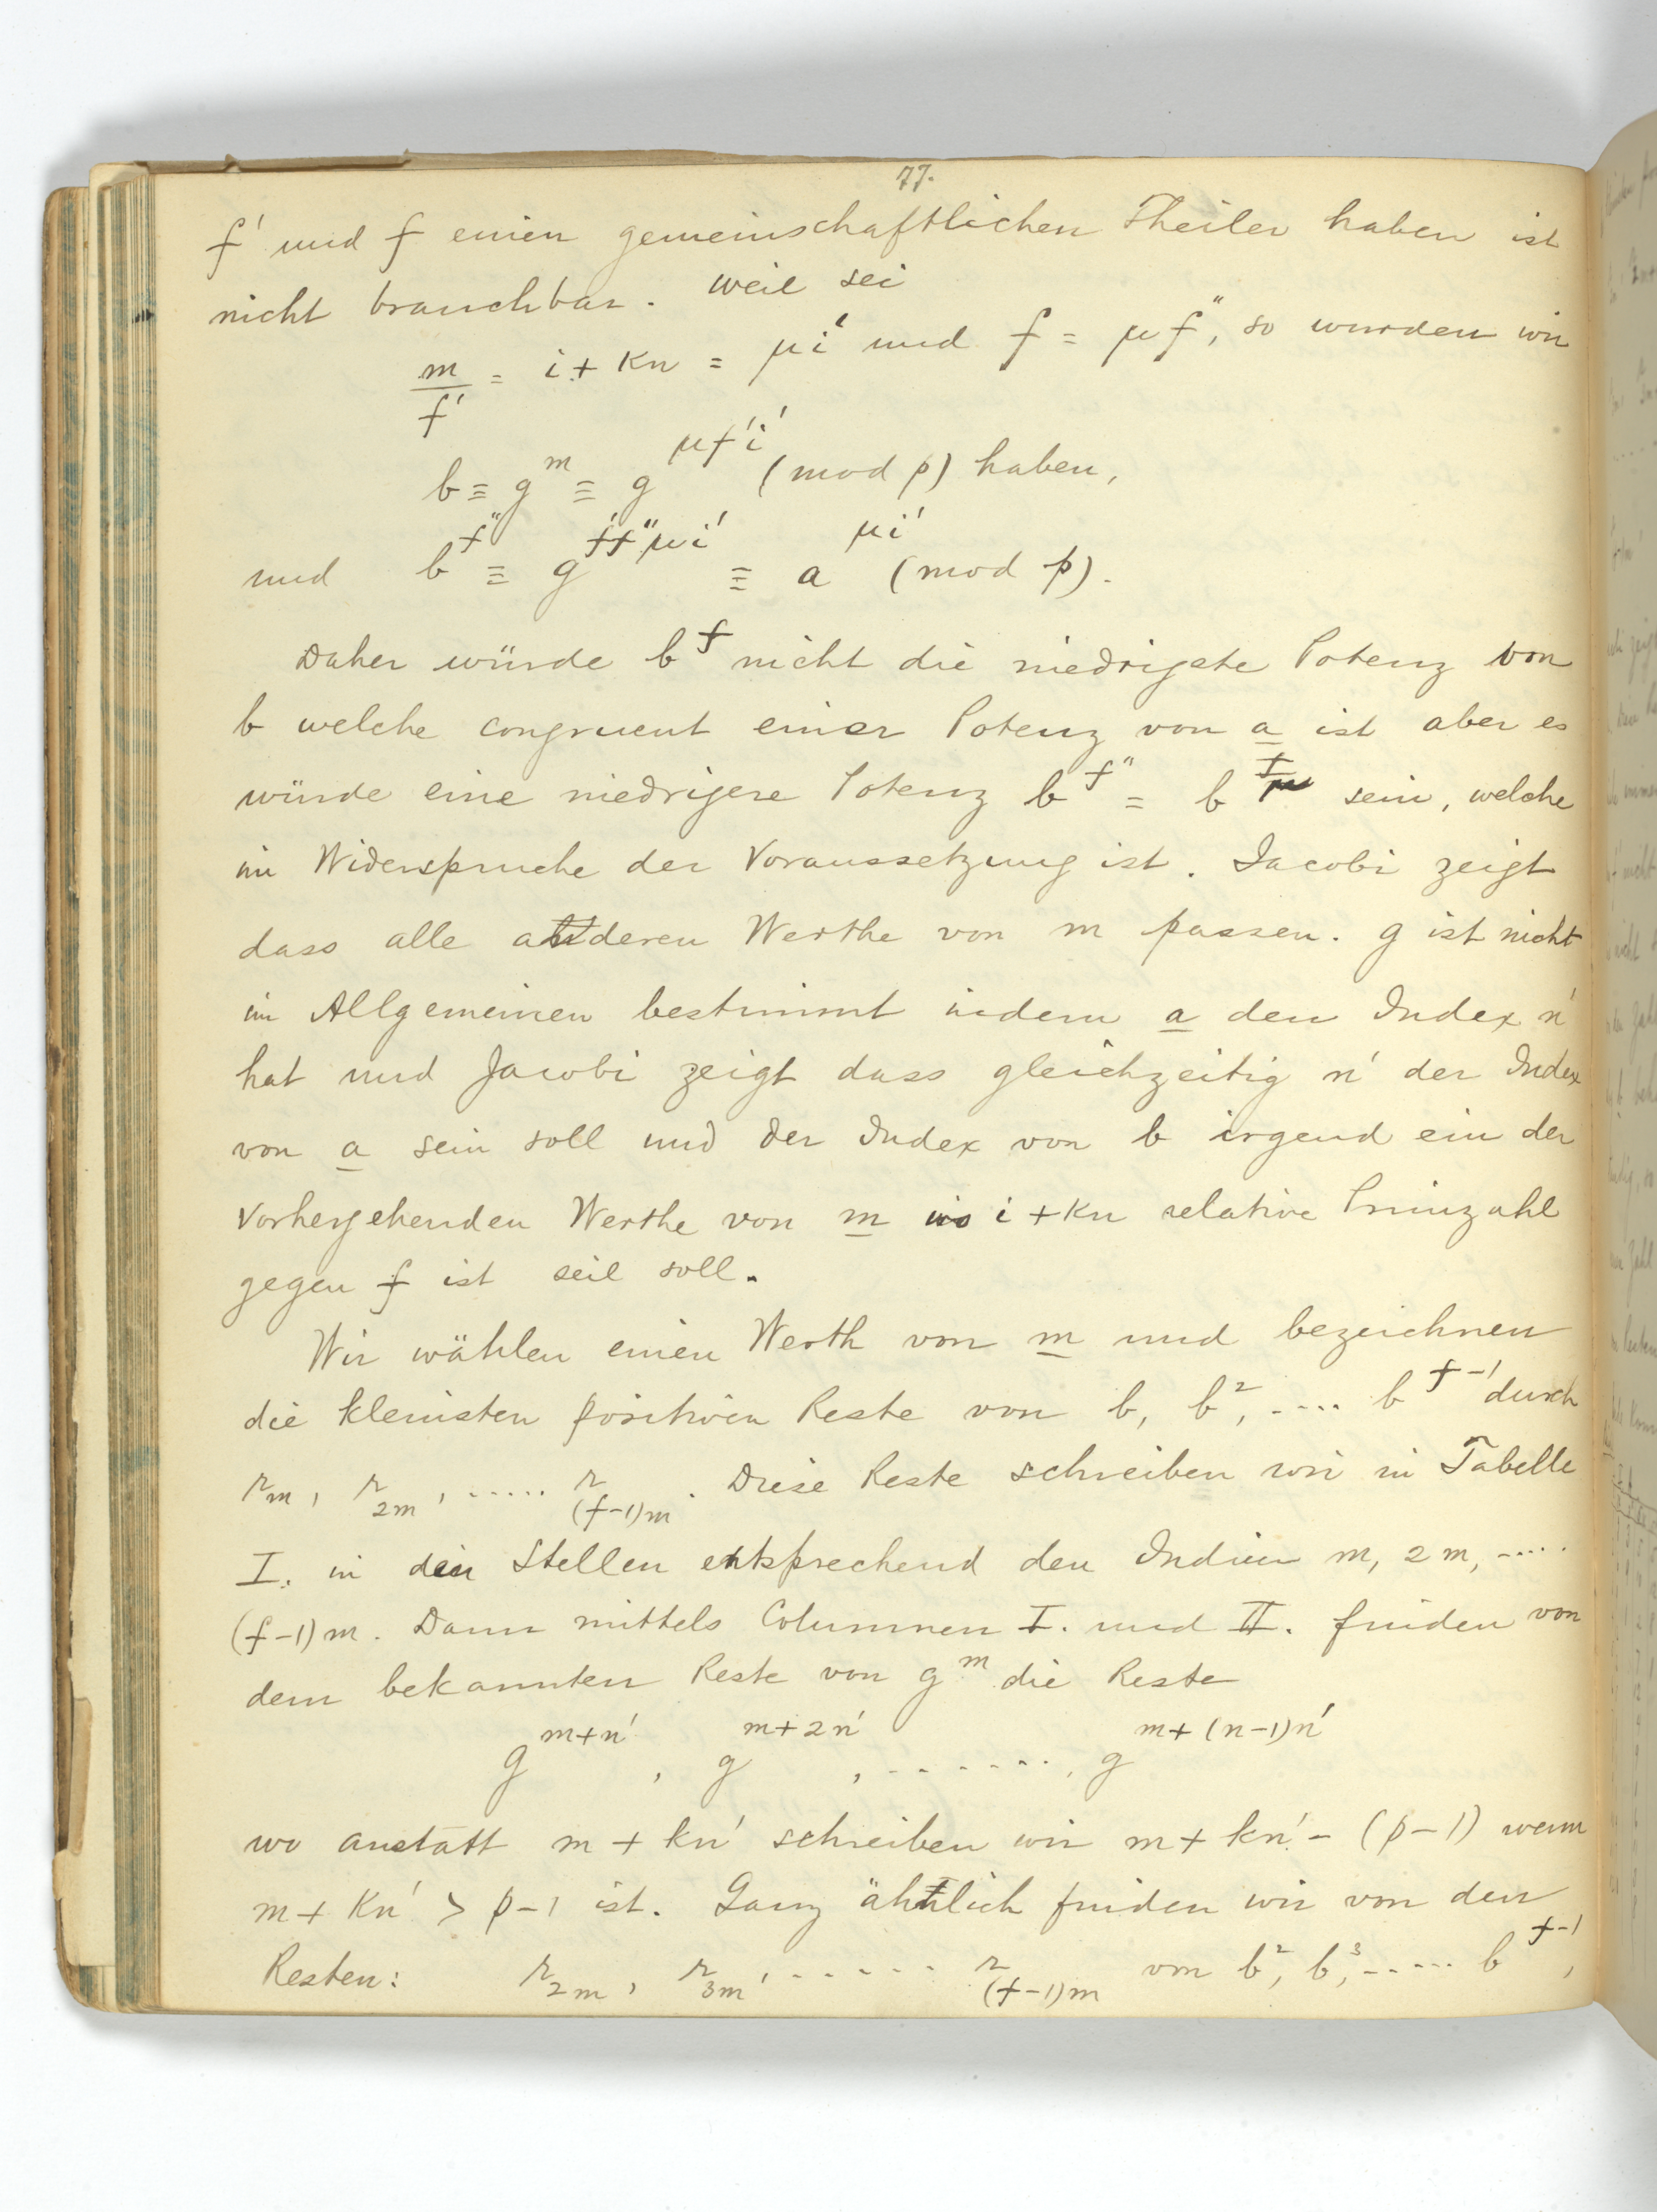 77.
f' und f einen gemeinschaftlichen Theiler haben ist
nicht brauchbar. weil sei
m/f' = i + kn = μi' und f = μf'', so wurden wir
b ≡ g^m ≡ g^{μf'i'} (mod p) haben,
und b^{f''} ≡ g^{f'f''μi'} ≡ a^{μi'} (mod p).
Daher würde b^f nicht die niedrigste Potenz von
b welche congruent einer Potenz von a ist aber es
würde eine niedrigere Potenz b^{f''} = b^{f/μ} sein, welche
im Widerspruche der Voraussetzung ist. Jacobi zeigt
dass alle anderen Werthe von m passen. g ist nicht
im Allgemeinen bestimmt indem a den Index n'
hat und Jacobi zeigt dass gleichzeitig n' der Index
von a sein soll und der Index von b irgend ein der
vorhergehenden Werthe von m wo i + kn relative Primzahl
gegen f ist seil soll.
Wir wählen einen Werth von m und bezeichnen
die kleinsten positiven Reste von b, b^2, .... b^{f-1} durch
r_m, r_{2m}, ..... r_{(f-1)m}. Diese Reste schreiben wir in Tabelle
I. in den Stellen entsprechend den Indicien m, 2m, .....
(f-1)m. Dann mittels Columnen I. und II. finden von
dem bekannten Reste von g^m die Reste
g^{m+n'}, g^{m+2n'}, ......., g^{m+(n-1)n'}
wo anstatt m + kn' schreiben wir m + kn' - (p-1) wenn
m + kn' > p-1 ist. Ganz ähnlich finden wir von den
Resten: r_{2m}, r_{3m}, ...... r_{(f-1)m} von b^2, b^3, ..... b^{f-1},